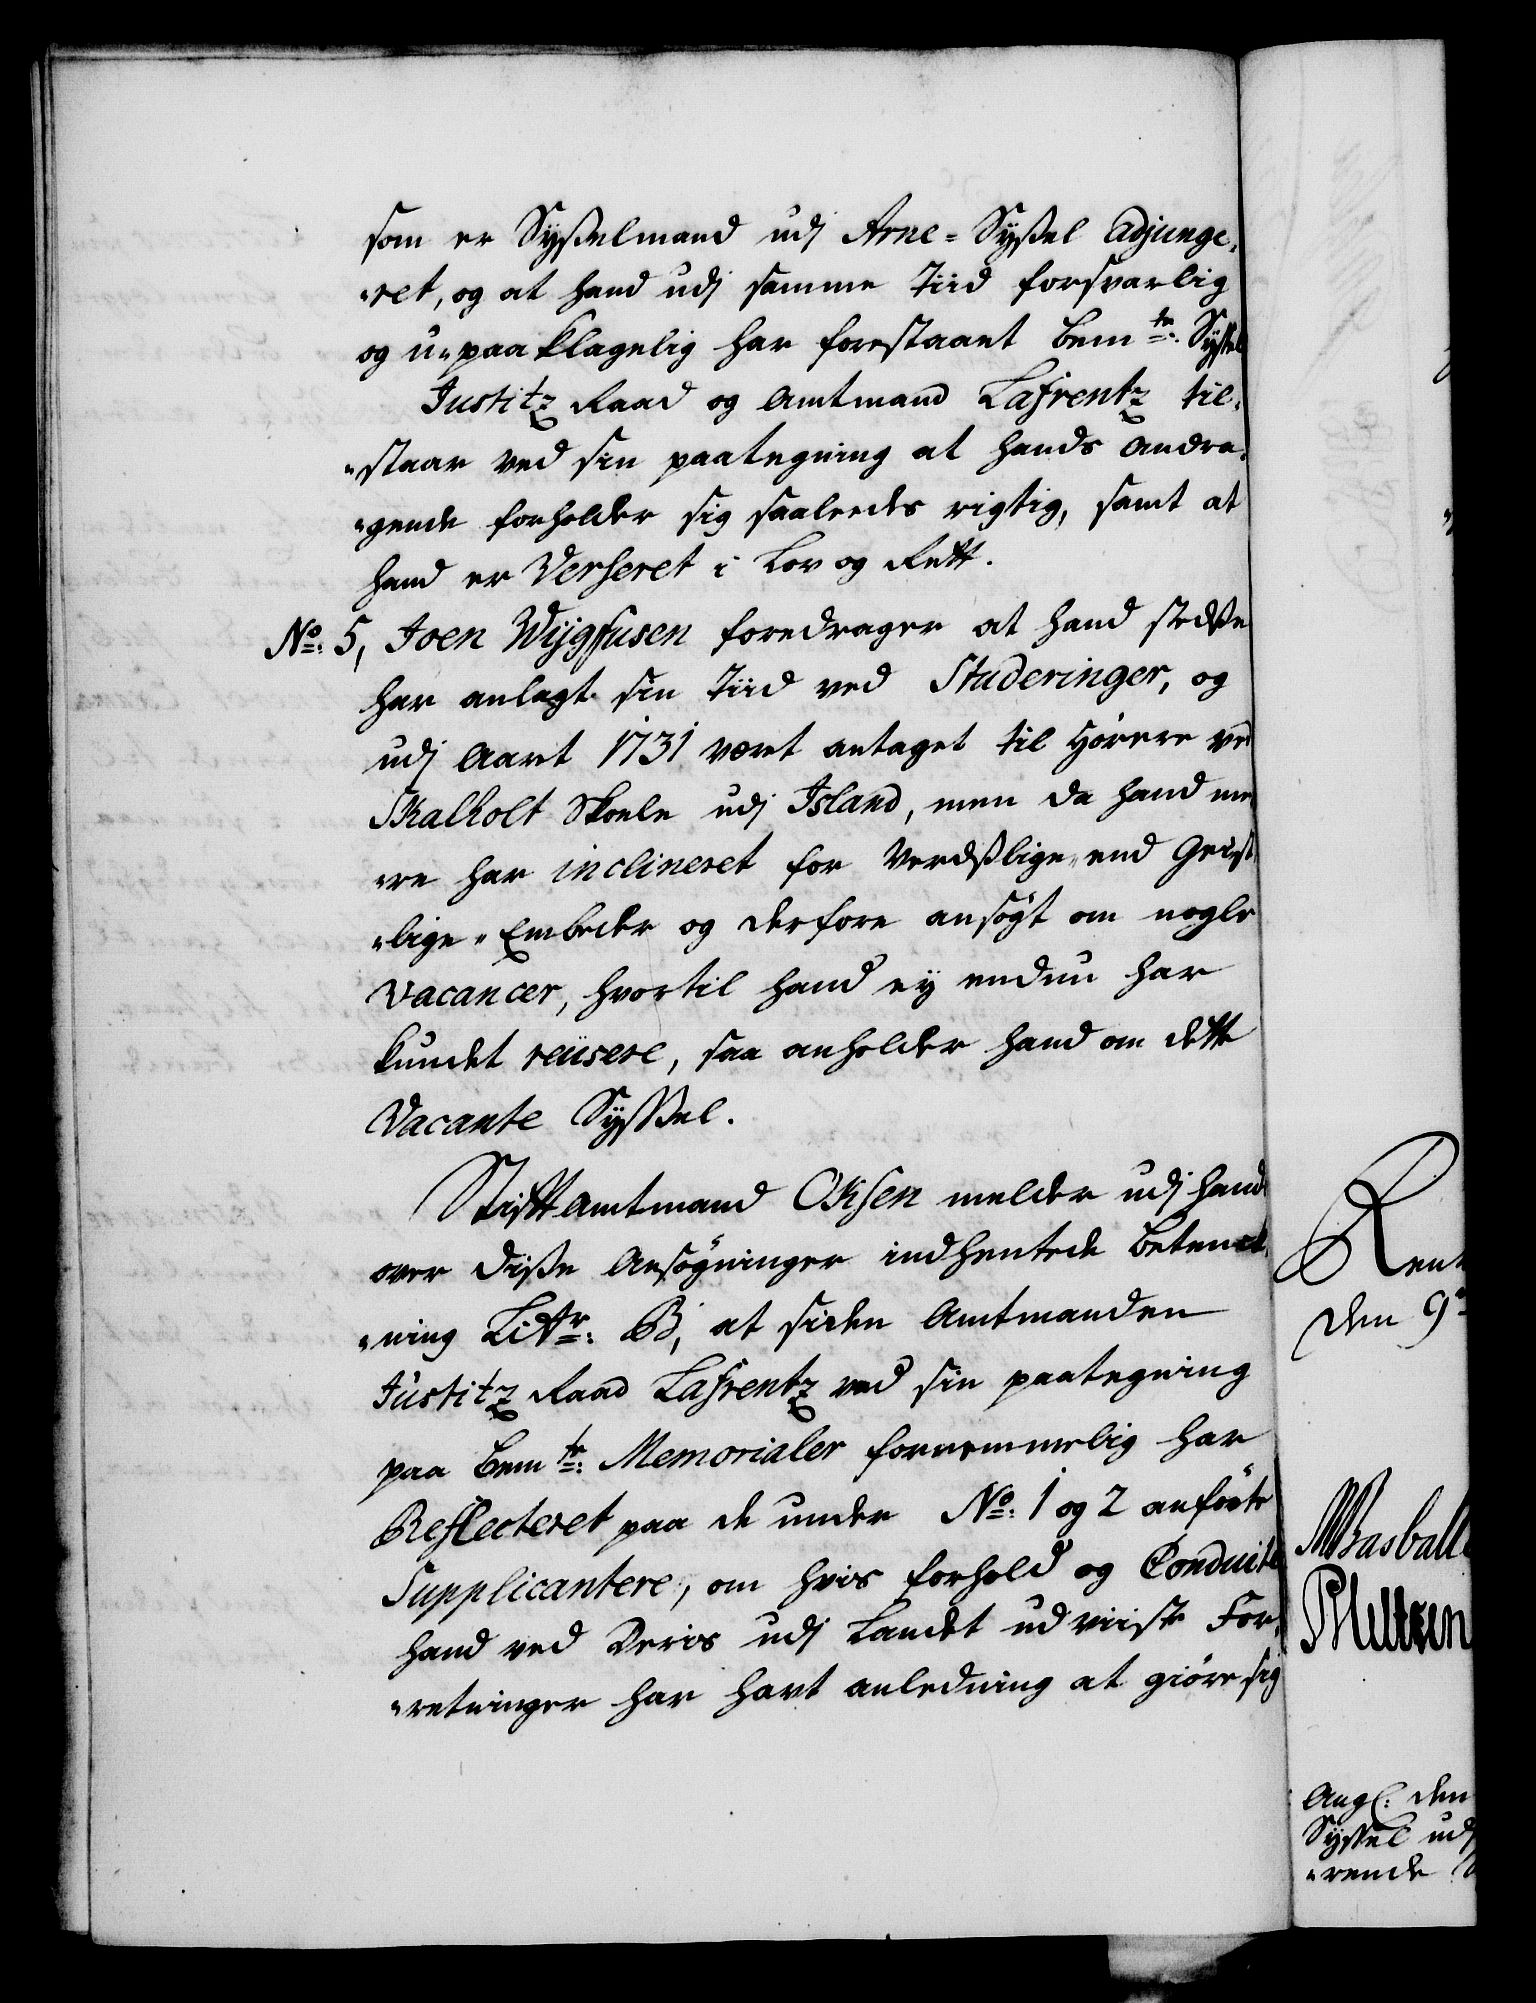 som er Sysselmand udj Arne=Syssel Adjunge„
„ret, og at hand udj samme Tiid forsvarlig
og u„paaklagelig har forestaaet bemte: Syssel
Justitz Raad og Amtmand Lafrentz til„
„staar ved sin paategning at hands Andra„
„gende forholder sig saaledes rigtig, samt at
hand er Verseret i Lov og Rett.
No: 5, Joen Wijgfusen foredrager at hand stedsse
har anlagt sin Tiid ved Studeringer, og
udj Aaret 1731 været antaget til Hörere ved
Skalholt Skoele udj Island, men da hand mee
„re har inclineret for Verdslige„ end Geist
„lige„ Embeder og derfore ansögt om nogle
Vacancer, hvortil hand ey endnu har
kundet reüsere, saa anholder hand om dette
Vacante Syssel.
Stiftamtmand Ocksen melder udj hands
over disse Ansögninger indhentede Betenck„
„ning Littr: B, at siden Amtmanden
Justitz Raad Lafrentz ved sin paategning
paa bemte: Memorialer fornemmelig har
Reflecteret paa de under No: 1 og 2 anförte
Supplicantere, om hvis forhold og Conduite
hand ved Deris udj Landet udviiste For„
„retninger har havt anledning at giöre sig
Rent
den 9
Basball
Ang: den
Syssel udj
„rende